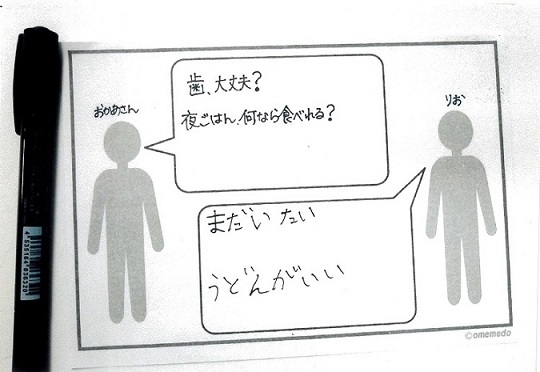 おかあさん
歯、大丈夫?
夜ごはん、何なら食べれる?
りお
まだいたい
うどんがいい
©omemedo